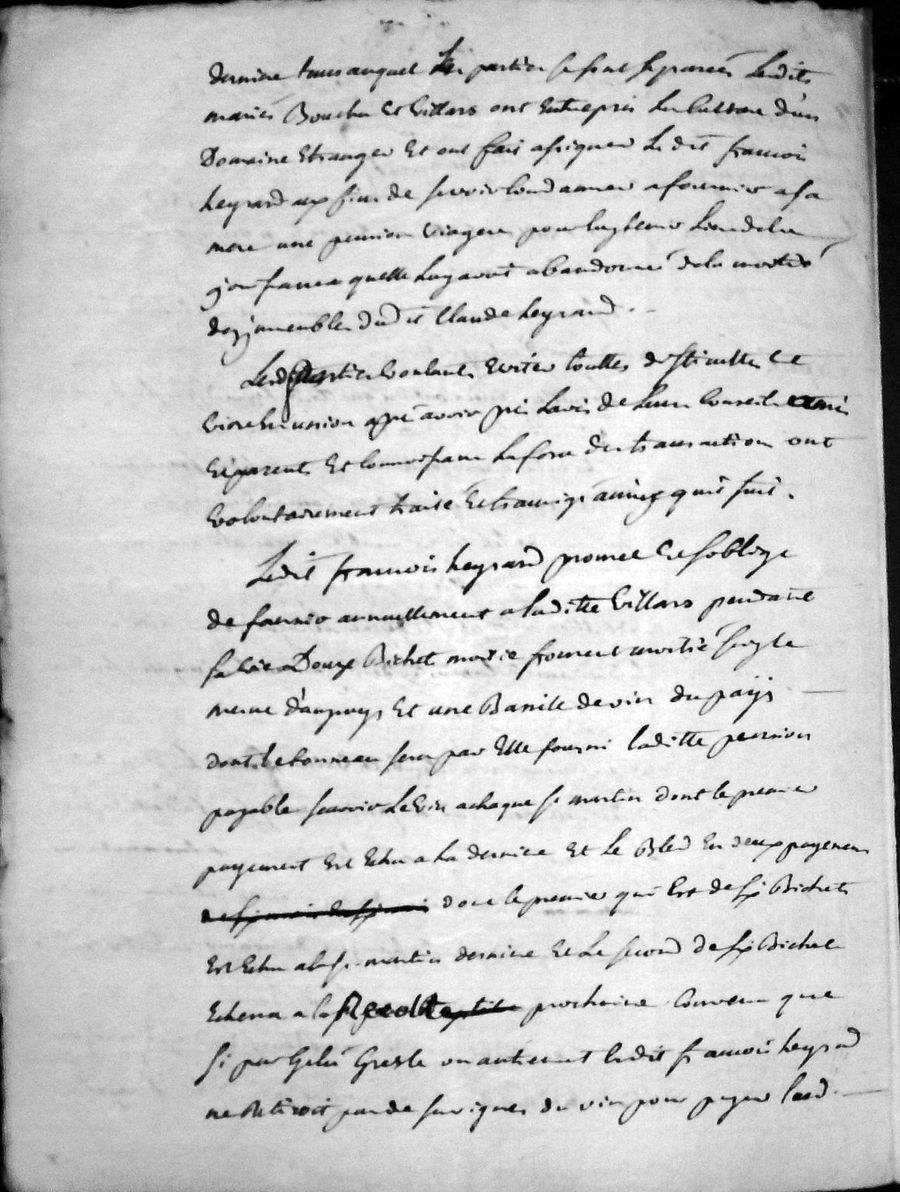 derniere tems auquel Les parties se sont separées Lesdits
mariés Boucher Et Villars ont Entrepris La Culture d'un
Domaine Etranger Et ont fait assigner Ledit francois
heyraud aux fins de se voir Condamner a fournir a sa
mere une pension viagere pour luy tenir Lieu de la
jouissance quelle luy avoit abandonné de la moitié
des jmmeubles dudit Claude heyraud.
Lesd parties voulant Eviter touttes difficultés Et
vivre En union apres avoir pris Lavis de Leurs Conseils amis
Et parents Et Connoissant La force des transactions ont
volontairement traité Et transigé ainsy quil suit.
Ledit francois heyraud promet Et soblige
de fournir annuellement a laditte Villars pendant
sa vie Douze Bichet moitie froment moitié seigle
mesure d'ampuys Et une Barrille de vin du pays
dont le tonneau sera par Elle fourni laditte pension
payable scavoir Le vin a chaque st martin dont le premier
payement Est Echu a La derniere Et Le Bled En deux payemens
de six mois En six mois donc le premier qui Est de six Bichets
Est Echu a la st martin derniere Et Le second de six Bichet
Echerra a la Recolte prochaine Convenu que
si par Gelée Gresle ou autrement ledit francois heyraud
ne Retiroit pas de ses vignes du vin pour payer lad.